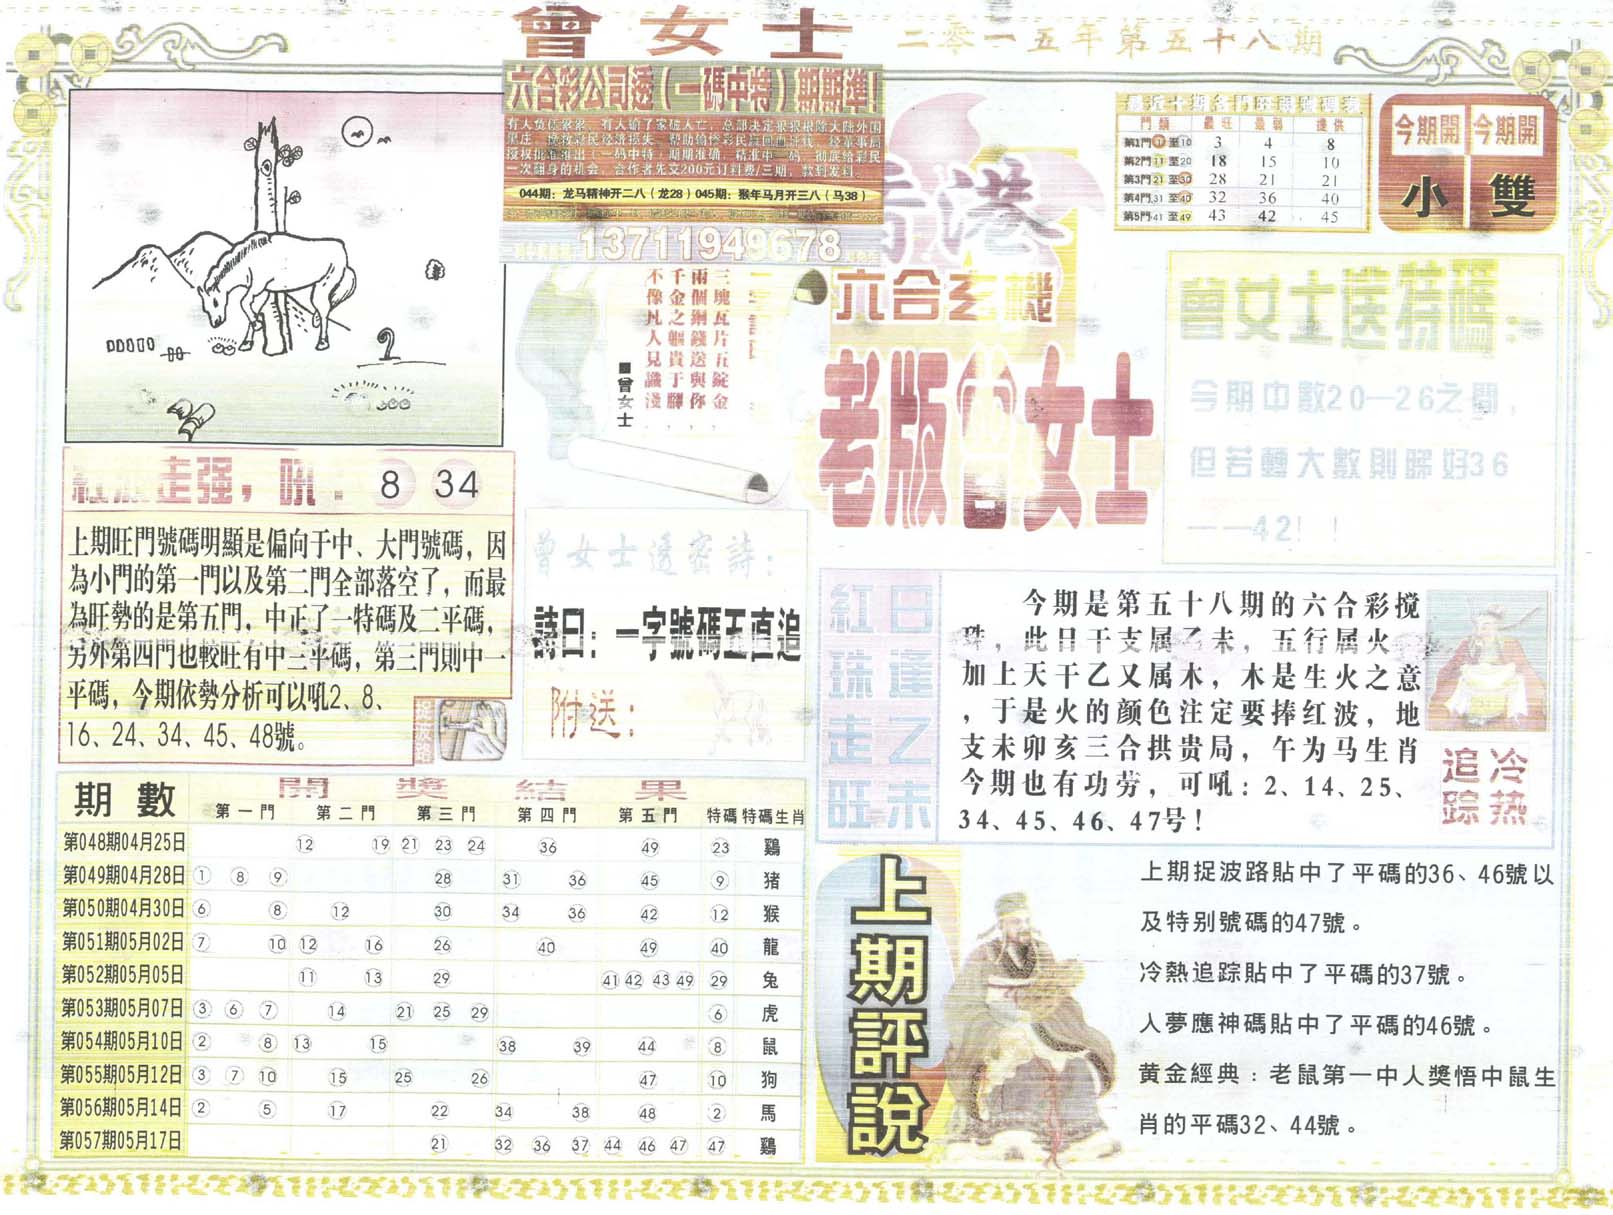 曾女士
二零一五年第五十八期
六合彩公司透(一碼中特)期期準!
有人负债累累、有人输了家破人亡、总部决定狠狠根除大陆外围
一次翻身的机会，合作者先支200元订料费/三期，款到发料。
044期：龙马精神开二八（龙28）045期：猴年马月开三八（马38）
13711949678
香港
六合玄機
老版曾女士
最近十期各門旺弱號碼表
門類 最旺 最弱 提供
第1門 1 至 10 3 4 8
第2門 11 至 20 18 15 10
第3門 21 至 30 28 21 21
第4門 31 至 40 32 36 40
第5門 41 至 49 43 42 45
今期開 今期開
小 雙
三塊瓦片五錠金，
兩個銅錢送與你，
千金之軀貴于腳，
不像凡人見識淺。
■曾女士
曾女士送特碼：
今期中數20—26之間，
但若轉大數則睇好36
——42！！
紅波走强，吼：8 34
上期旺門號碼明顯是偏向于中、大門號碼，因
為小門的第一門以及第二門全部落空了，而最
為旺勢的是第五門，中正了一特碼及二平碼，
另外第四門也較旺有中三平碼，第三門則中一
平碼，今期依勢分析可以吼2、8、
16、24、34、45、48號。
捉波路
曾女士透密詩：
詩曰：一字號碼五直追
附送：
紅珠走旺
日逢乙未
今期是第五十八期的六合彩搅
珠，此日干支属乙未，五行属火
加上天干乙又属木，木是生火之意
，于是火的颜色注定要捧红波，地
支未卯亥三合拱贵局，午为马生肖
今期也有功劳，可吼：2、14、25、
34、45、46、47号！
冷热
追踪
期數 開獎結果
第一門 第二門 第三門 第四門 第五門 特碼 特碼生肖
第048期04月25日 12 19 21 23 24 36 49 23 鷄
第049期04月28日 1 8 9 28 31 36 45 9 猪
第050期04月30日 6 8 12 30 34 36 42 12 猴
第051期05月02日 7 10 12 16 26 40 49 40 龍
第052期05月05日 11 13 29 41 42 43 49 29 兔
第053期05月07日 3 6 7 14 21 25 29 6 虎
第054期05月10日 2 8 13 15 38 39 44 8 鼠
第055期05月12日 3 7 10 15 25 26 47 10 狗
第056期05月14日 2 5 17 22 34 38 48 2 馬
第057期05月17日 21 32 36 37 44 46 47 47 鷄
上期評說
上期捉波路貼中了平碼的36、46號以
及特别號碼的47號。
冷熱追踪貼中了平碼的37號。
人夢應神碼貼中了平碼的46號。
黄金經典：老鼠第一中人獎悟中鼠生
肖的平碼32、44號。